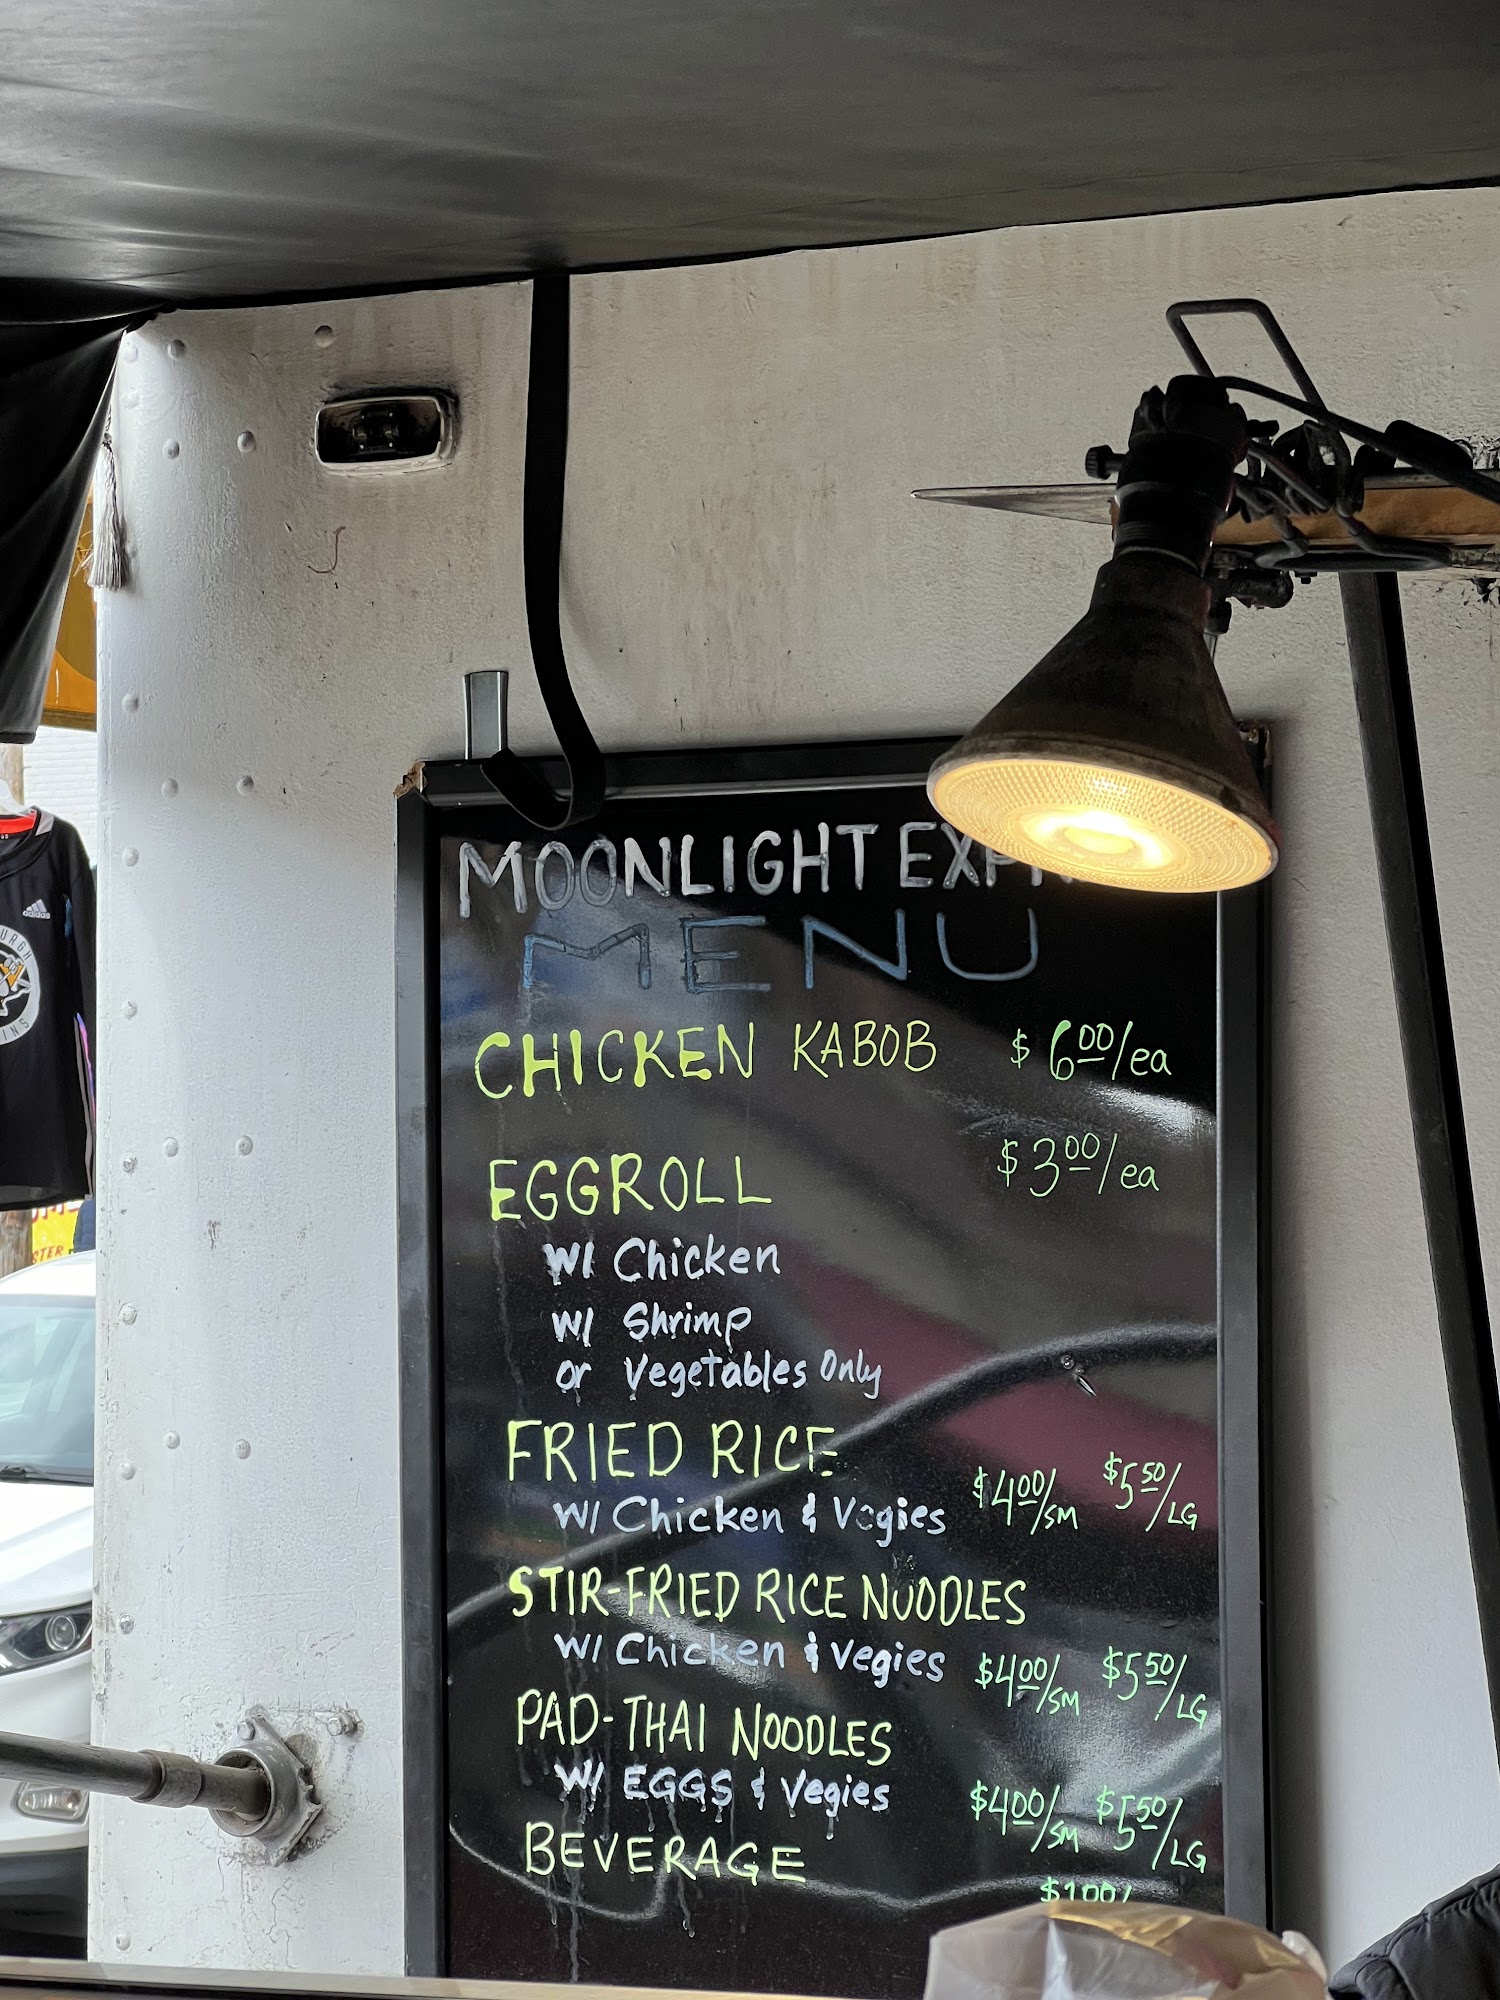 MOONLIGHT EXPR
MENU
CHICKEN KABOB $6.00/ea
EGGROLL $3.00/ea
W/ Chicken
W/ Shrimp
or Vegetables Only
FRIED RICE
W/ Chicken & Vegies $4.00/SM $5.50/LG
STIR-FRIED RICE NOODLES
W/ Chicken & Vegies $4.00/SM $5.50/LG
PAD-THAI NOODLES
W/ EGGS & Vegies $4.00/SM $5.50/LG
BEVERAGE $1.00/
adidas